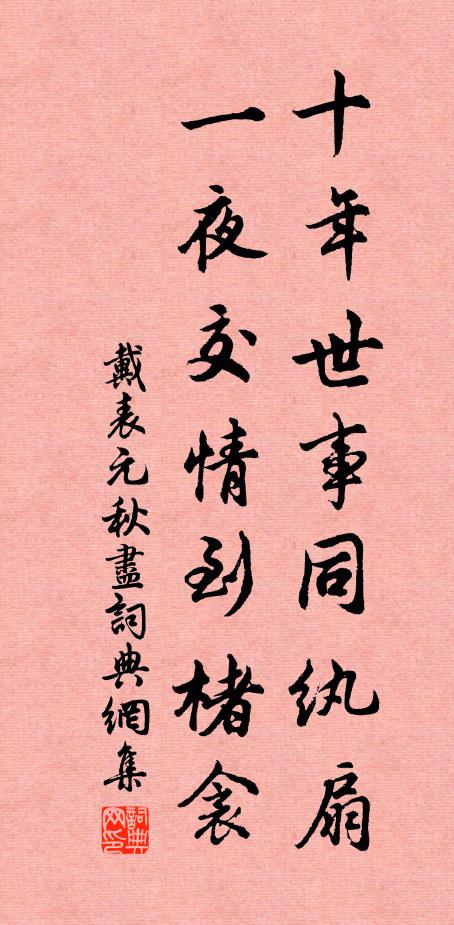 十年世事同纨扇
一夜交情到楮衾
戴表元秋盡詞典網集
詞典网印